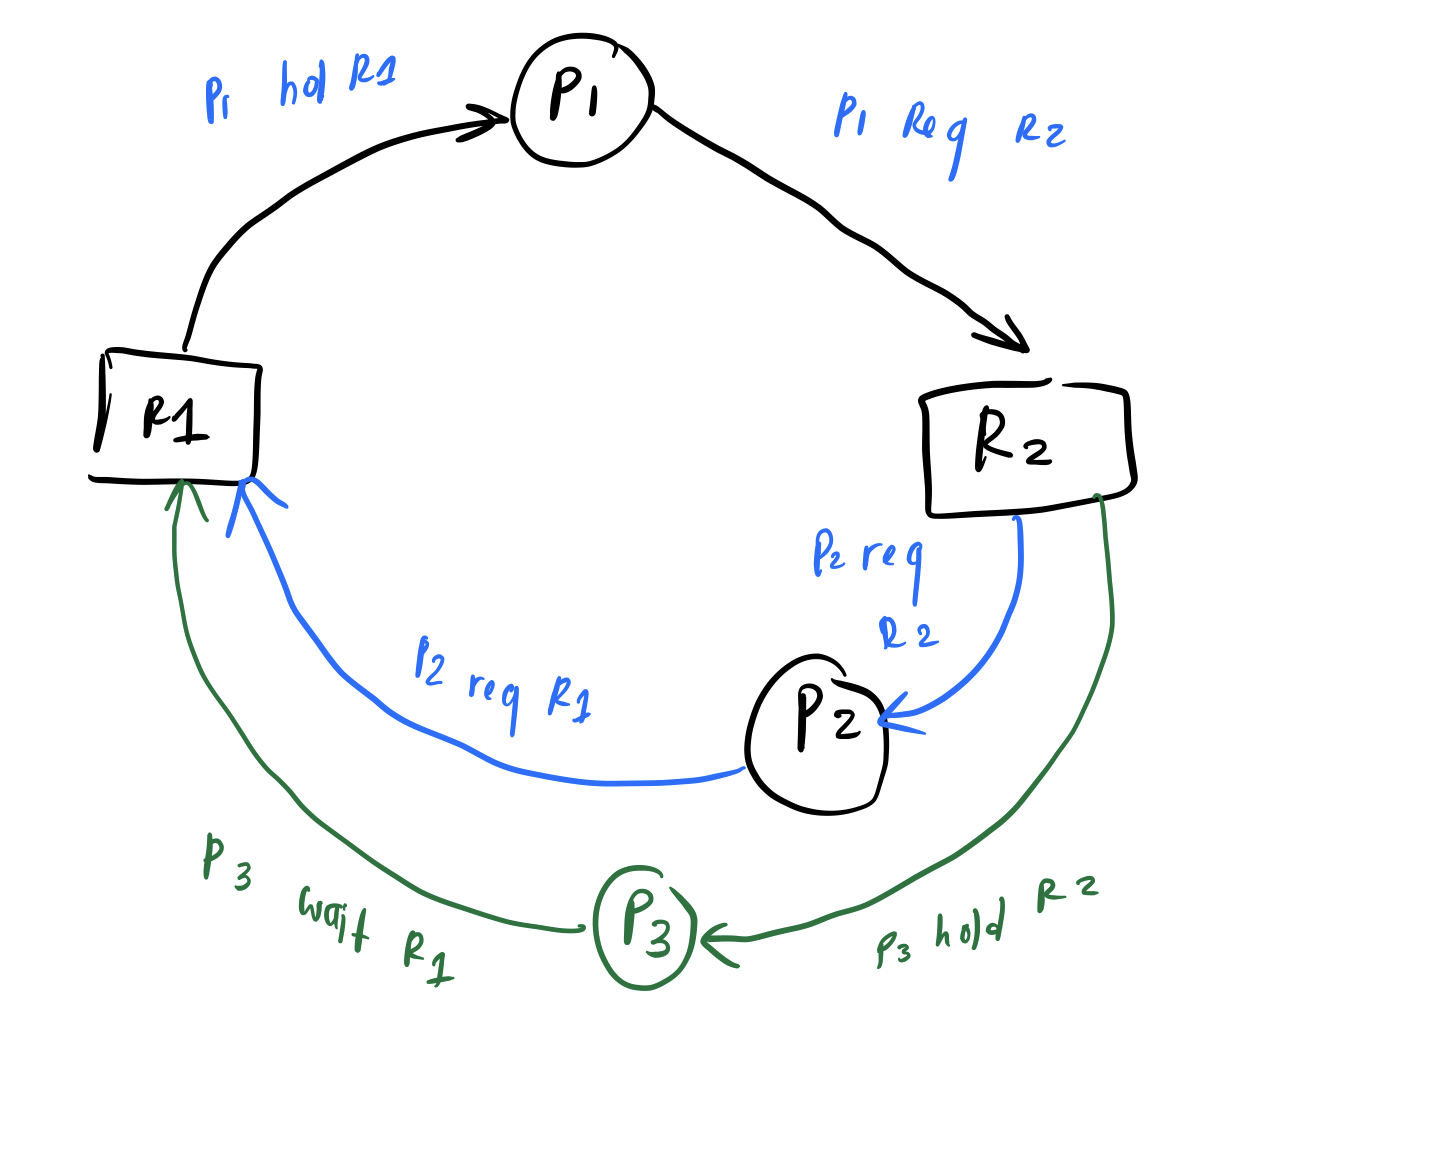 P1 hol R1
P1
P1 Req R2
R1
R2
P2 req
R2
P2 req R1
P2
P3 wait R1
P3
P3 hold R2